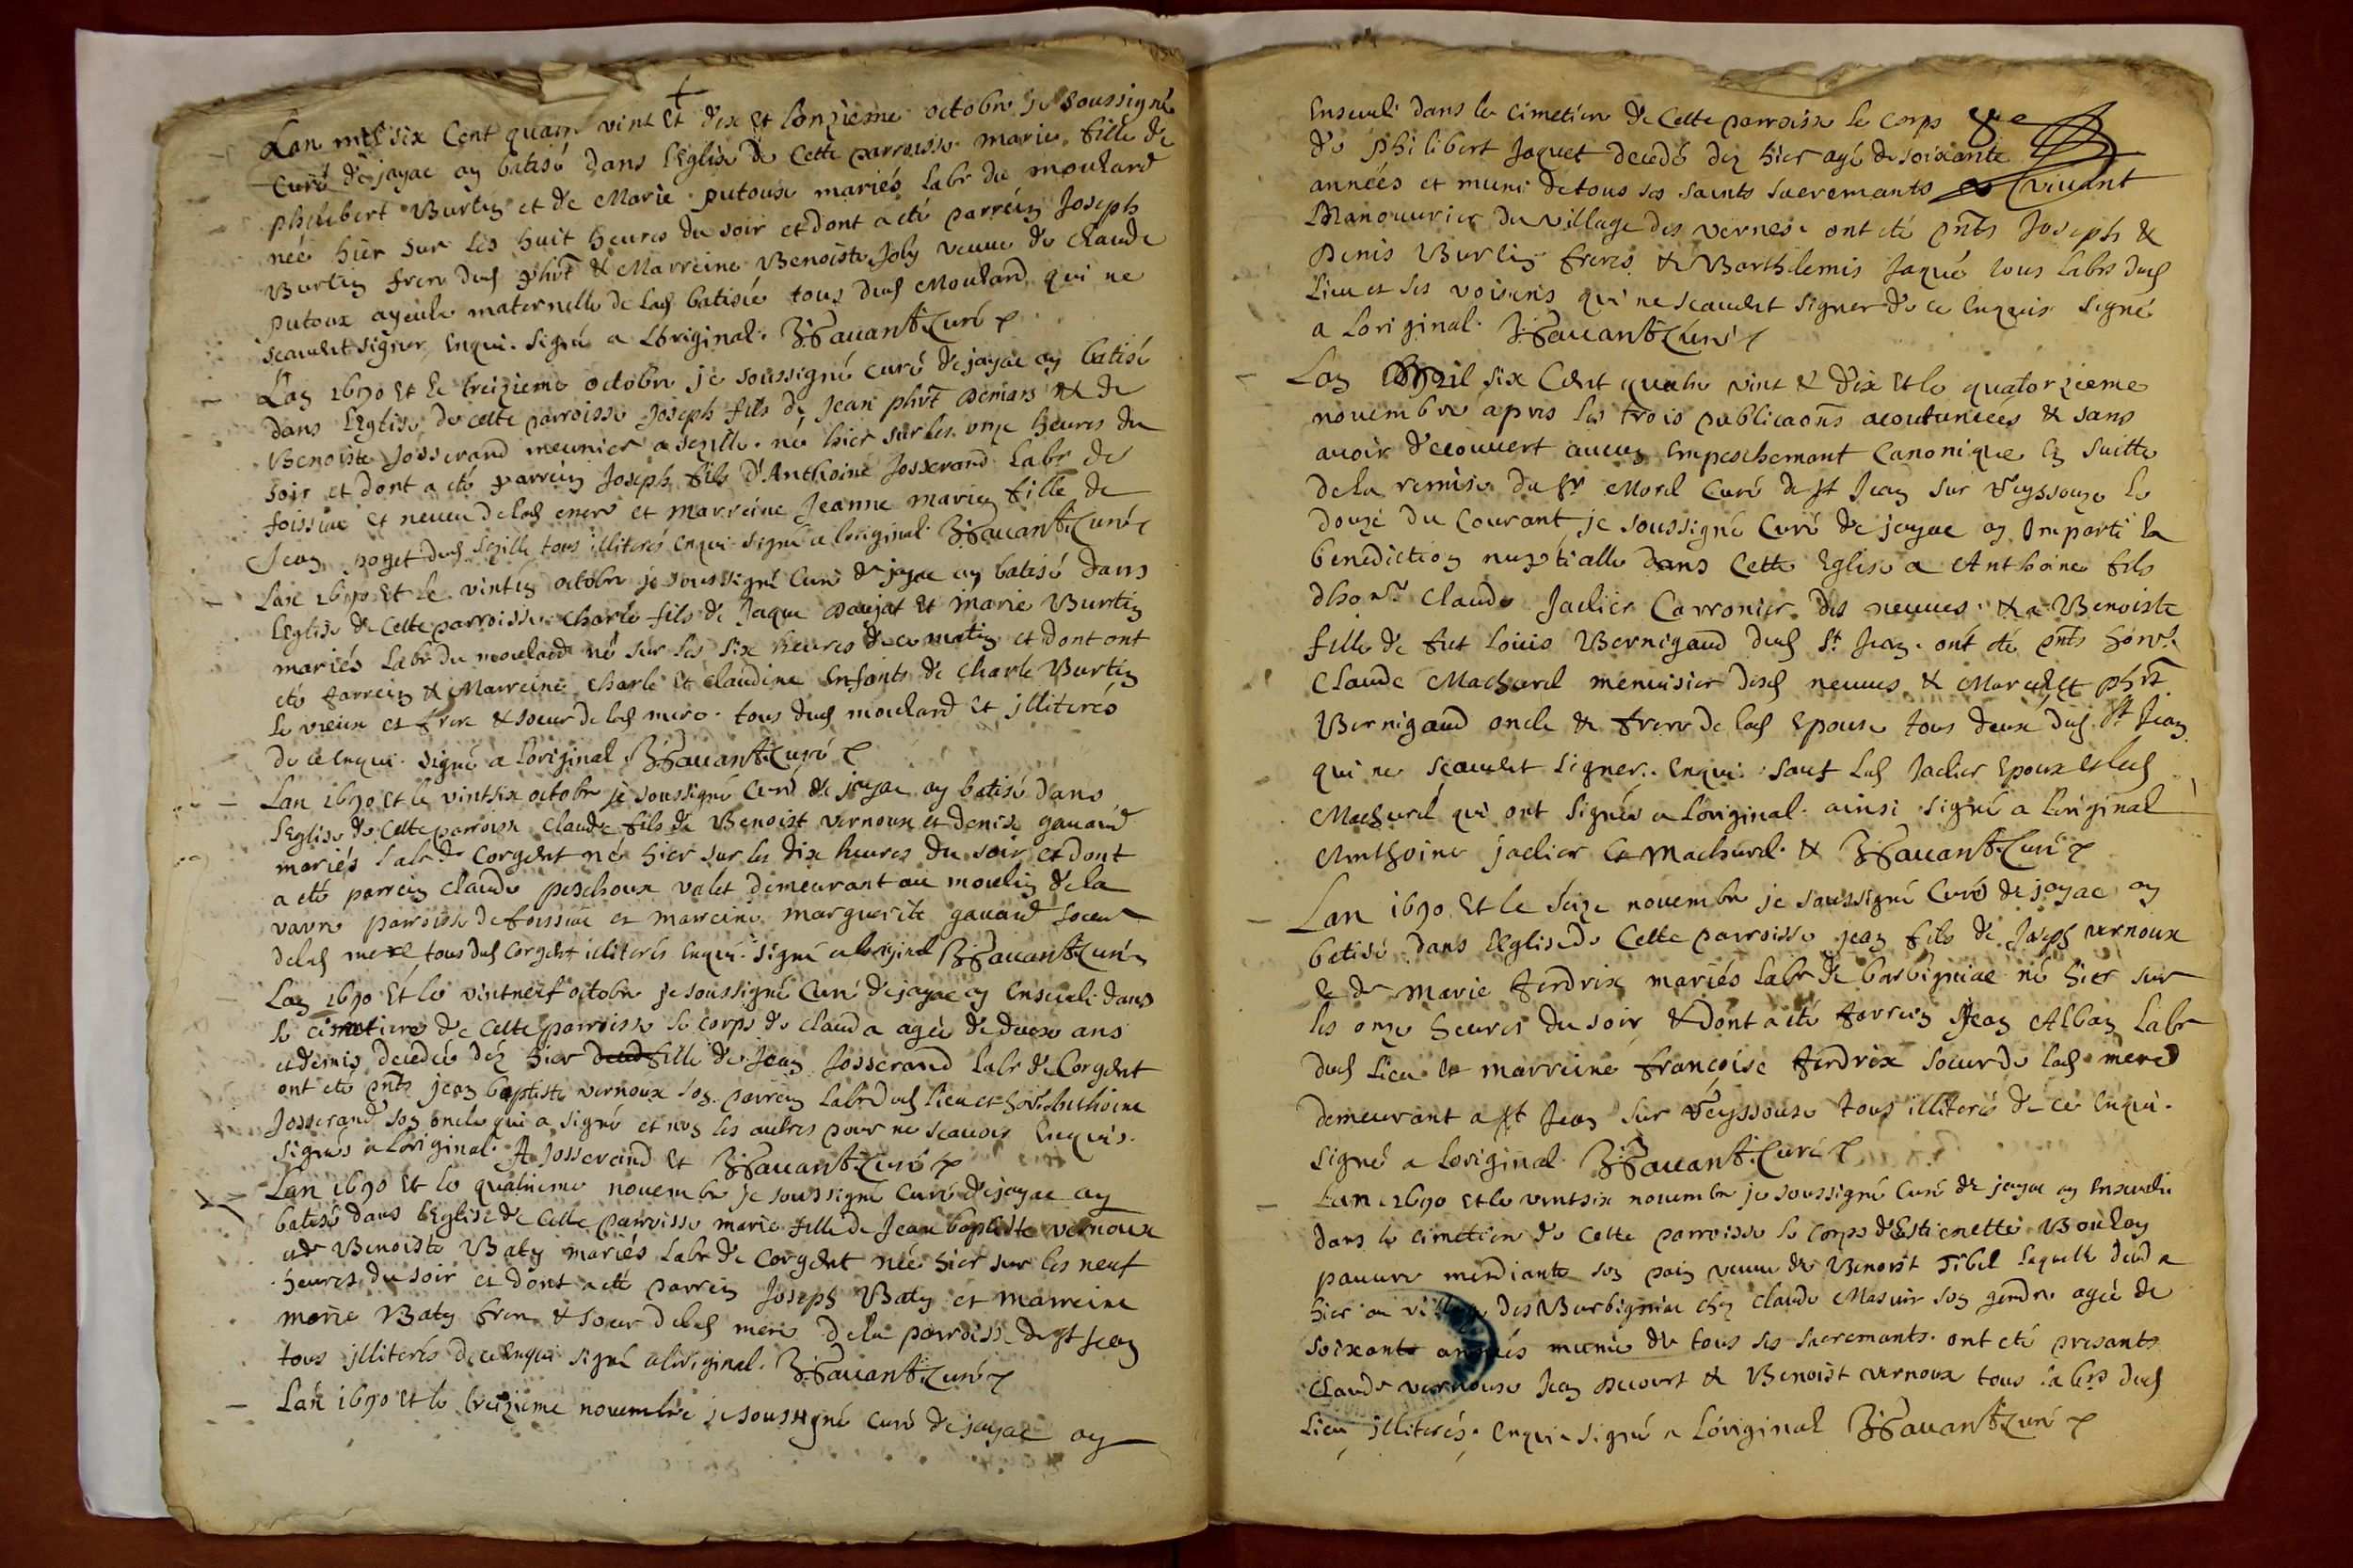 Lan mil six Cent quatre vint Et dix et lonzieme octobre je soussigné
Curé de jayac ay batisé dans l'Eglise de Cette parroisse marie fille de
philibert Burtin et de Marie putoux mariés labr du moulard
née hier sur les huit heures du soir et dont a eté parrein Joseph
Burtin frere dud phbt & Marreine Benoiste Joly veuve de claude
putoux ayeule maternelle de lad batisée tous dud Moulard qui ne
scauent signer enqui. signé a Loriginal. Curé
Lan 1690 Et le treizieme octobre je soussigné curé de jayac ay batisé
dans lEglise de cette parroisse Joseph fils de Jean phbt & de
Benoiste Josserand meunier a sezille. né hier sur les onze heures du
soir et dont a eté parrein Joseph fils d'Anthoine Josserand Labr de
foissiac et neveu de lad mere et marreine Jeanne marie fille de
Jean poget dud sezille tous illiterés enqui signé a loriginal. Curé
Lan 1690 Et le vintin octobre je soussigné Curé de jayac ay batisé dans
lEglise de Cette parroisse charle fils de Jaque Et marie Burtin
mariés Labr du moulard né sur les six heures de ce matin et dont ont
eté parrein & Marreine charle Et claudine Enfants de charle Burtin
le vieux et frere & soeur de lad mere. tous dud moulard et jlliterés
de ce enqui. signé a loriginal. Curé
Lan 1690 Et le vintsix octobre je soussigné Curé de jayac ay batisé dans
lEglise de Cette parroisse claude fils de Benoist vernoux et denise gauand
mariés labr de Corgent né hier sur les dix heures du soir et dont
a eté parrein claude peschoux valet demeurant au moulin de la
vavre parroisse de foissiac et marreine marguerite gauand soeur
de lad mere tous dud Corgent illiterés enqui. signé a loriginal Curé
Lan 1690 Et le vintneuf octobre je soussigné Curé de jayac ay enseveli dans
le cimetiere de Cette parroisse le corps de clauda agée de deux ans
et demis decedée dez hier fille de Jean Josserand Labr de Corgent
ont eté pnts jean baptiste vernoux son parrein Labr dud lieu et Anthoine
Josserand son oncle qui a signé et non les autres pour ne scauoir enquis.
signés a Loriginal. A Josserand Et Curé
Lan 1690 Et le quatrieme novembre je soussigné Curé de jayac ay
batisé dans lEglise de Cette parroisse marie fille de Jean baptiste vernoux
et de Benoiste Baty mariés Labr de Corgent née hier sur les neuf
heures du soir et dont a eté parrein Joseph Baty et marreine
marie Baty frere & soeur de lad mere de la parroisse de St Jean
tous jlliterés de ce enqui signé a loriginal. Curé
Lan 1690 Et le treizieme novembre je soussigné Curé de jayac ay
Enseveli dans le cimetiere de Cette parroisse le corps
de philibert Jaquet decedé dez hier agé de soixante
années et muni de tous ses saints sacremants vivant
Manouvrier du village des vernes. ont eté pnts Joseph &
Denis Burtin freres & Barthlemis Jaqué tous labrs dud
Lieu et ses voisins qui ne scauent signer de ce enquis signé
a Loriginal. Curé
Lan Mil six Cent quatre vint & dix Et le quatorzieme
novembre apres les trois publicaons acoutumées & sans
avoir decouvert aucun Empeschemant Canonique En suitte
de la remise du Sr Morel Curé de St Jean sur Reyssouze le
douze du Courant je soussigné Curé de jayac ay Imparti la
benediction nuptialle dans Cette Eglise a Anthoine fils
dhon. Claude Jaclier Carronier des neuves. & a Benoiste
fille de fut Louis Bernigaud dud St Jean. ont eté pnts hon.
Claude Machard menuisier desd neuves & Marc & phbt
Bernigaud oncle & frere de lad Epouse tous deux dud St Jean
qui ne scauent signer. enqui sauf led Jaclier Epoux et led
Machurel qui ont signés a Loriginal. ainsi signé a Loriginal
Anthoine jaclier Machurel. & Curé
Lan 1690 Et le seize novembre je soussigné Curé de jayac ay
batisé dans lEglise de Cette parroisse jean fils de Joseph vernoux
e de marie Perdrix mariés Labr de barbigniac né hier sur
les onze heures du soir & dont a eté parrein Jean Alban Labr
dud Lieu & marreine françoise Perdrix soeur de lad mere
demeurant a St Jean sur Reyssouze tous illiterés de ce enqui.
signé a Loriginal. Curé
Lan 1690 Et le vintsix novembre je soussigné Curé de jayac ay Enseveli
dans le cimetiere de Cette parroisse le Corps dEstiennette
pauvre mendiante son pain veuve de Benoist Tibel laquelle deceda
hier au des Barbigniac chez claude Masuir son gendre agée de
soixante années munie de tous ses sacremants. ont eté presants
Claude vernoux Jean & Benoist vernoux tous labrs dud
Lieu jlliterés. enqui signé a Loriginal Curé